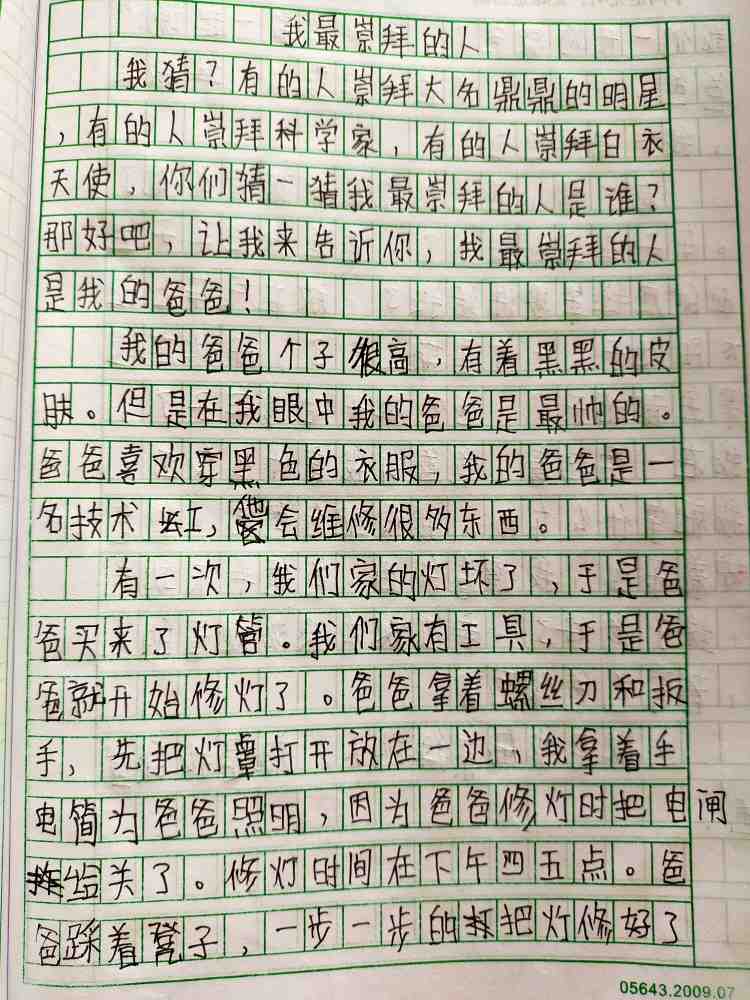 我最崇拜的人
我猜？有的人崇拜大名鼎鼎的明星
，有的人崇拜科学家，有的人崇拜白衣
天使，你们猜一猜我最崇拜的人是谁？
那好吧，让我来告诉你，我最崇拜的人
是我的爸爸！
我的爸爸个子很高，有着黑黑的皮
肤。但是在我眼中我的爸爸是最帅的。
爸爸喜欢穿黑色的衣服，我的爸爸是一
名技术工，他会维修很多东西。
有一次，我们家的灯坏了，于是爸
爸买来了灯管。我们家有工具，于是爸
爸就开始修灯了。爸爸拿着螺丝刀和扳
手，先把灯罩打开放在一边、我拿着手
电筒为爸爸照明，因为爸爸修灯时把电闸
给关了。修灯时间在下午四五点。爸
爸踩着凳子，一步一步的把灯修好了
05643.2009.07